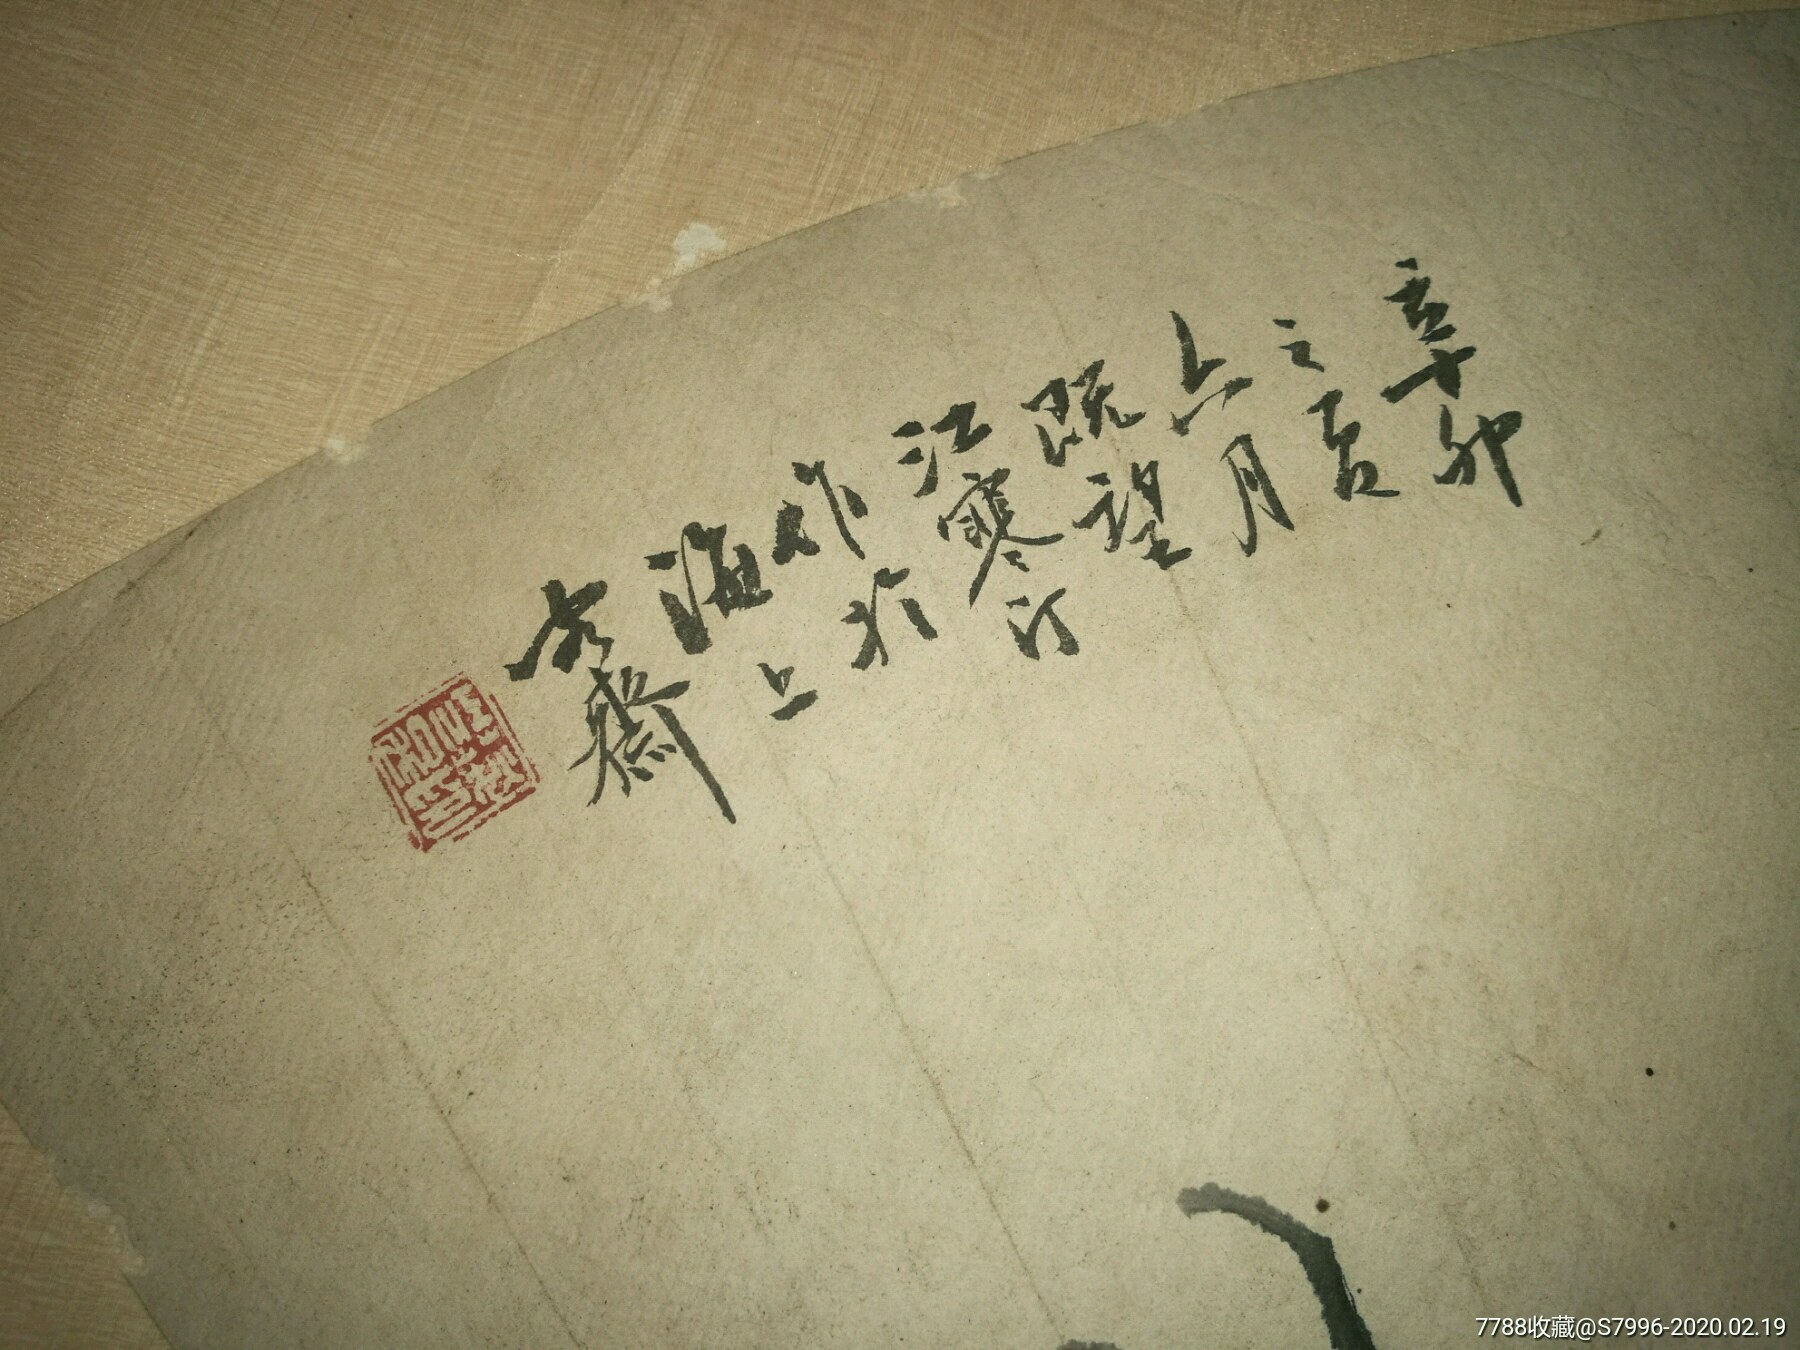 辛卯
之夏
六月
既望
江寒汀
作於
海上
容齋
7788收藏@S7996-2020.02.19